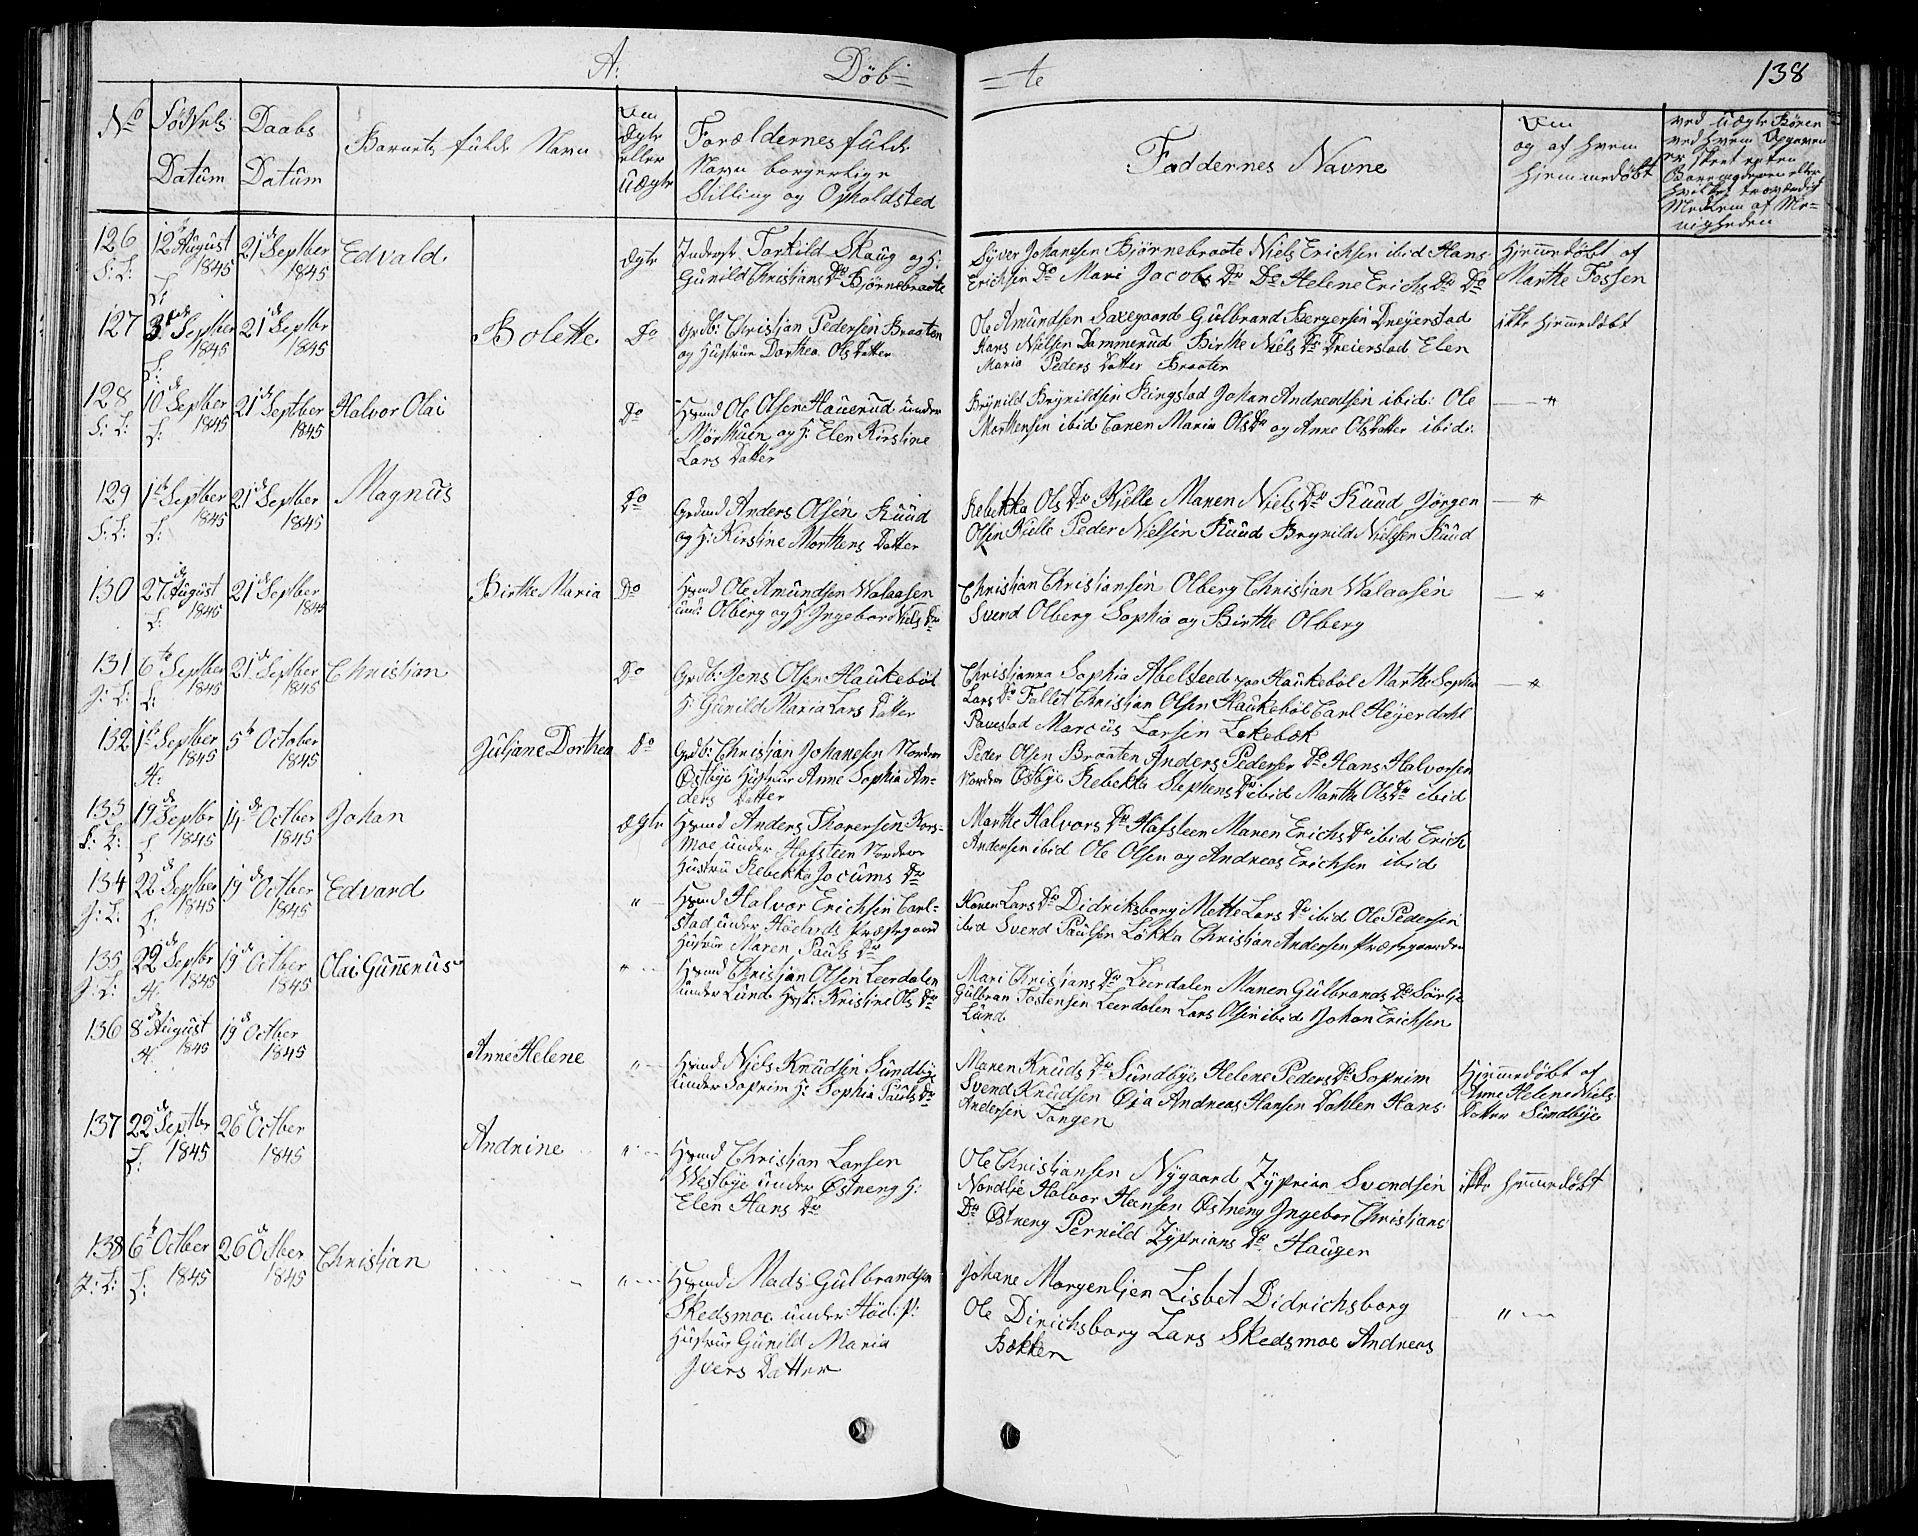 A: Døb= =te 138
No Fødsels Datum Daabs Datum Barnets fulde Navn Om Ægte eller Uægte Forældernes fulde Navn borgerlige Stilling og Opholdsted Faddernes Navne Om og af hvem hjemmedøbt ved Uægte Børn
126 12 August 1845 21de Septber 1845 Edvald Ægte Inderst Torkild Skoug og H: Gunild Christians Dr Bjørnebraate
Syver Johansen Bjørnebraate Niels Erichsen ibid Hans
Erichsen Do Mari Jacobs Dr Do Helene Erichs Dr Do
Hjemmedøbt af
Marthe Fossen
127 3de Septber 1845 21de Septbr 1845 Bolette Do Grdb: Christian Pedersen Braaten
og Hustrue Dorthea Ols Datter
Ole Amundsen Saxegaard Gulbrand Bergersen Dreyerstad
Hans Nielsen Dammerud Birthe Niels Dr Dreierstad Elen
Maria Peders Datter Braaten
ikke hjemmedøbt
128 10de Septber 1845 21de Septber 1845 Halvor Olai Do Hsmd Ole Olsen Hauerud under
Mørthuen og H: Elen Kirstine
Lars Datter
Brynild Brynildsen Ringstad Johan Andreassen ibid: Ole
Morthensen ibid Caren Maria Ols Dr og Anne Olsdatter ibid:
129 1te Septber 1845 21de Septber 1845 Magnus Do Grdmd Anders Olsen Ruud
og H: Kirstine Morthens Datter
Rebekka Ols Dr Kjelle Maren Niels Dr Ruud Jørgen
Olsen Kjelle Peder Nielsen Ruud Brynild Nielsen Ruud
130 27de August 1845 21de Septber 1845 Birthe Maria Do Hsmd Ole Amundsen Walaasen
und: Olberg og H: Ingebor Niels Dr
Christian Christiansen Olberg Christian Walaasen
Svend Olberg Sophia og Birthe Olberg
131 6te Septber 1845 21de Septber 1845 Christian Do Grdb: Jens Olsen Haukebøl
H: Gunild Maria Lars Datter
Christianna Sophia Abelsteed paa Haukebøl Marthe Sophia
Lars Dr Tallet Christian Olsen Haukebøl Carl Heyerdahl
Pavestad Marcus Larsen Lokebæk
132 1te Septber 1845 5te October 1845 Juliane Dorthea Do Grdb: Christian Johansen Nordre
Østbye Hustrue Anne Sophia An-
ders Datter
Peder Olsen Braaten Anders Pedersen Do Hans Halvorsen
Nordre Østbye Rebekka Stephens Dr ibid Marthe Ols Dr ibid
133 19de Septbr 1845 19de Octber 1845 Johan Ægte Hsmd Anders Thoresen Kors-
moe under Hofsteen Nordre
Hustru Rebekka Jocums Dr
Marthe Halvors Dr Hofsteen Maren Erichs Dr ibid Erich
Andersen ibid Ole Olsen og Andreas Erichsen ibid
134 22de Septber 1845 19de Octber 1845 Edvard " Hsmd Halvor Erichsen Carl-
stad under Høelands Præstegaard
Hustrue Maren Pauls Dr
Karen Lars Dr Didriksborg Mette Lars Dr ibid Ole Pedersen
ibid Svend Paulsen Løkka Christian Andersen Præstegaarden
135 22de Septbr 1845 19de Octber 1845 Olai Gunnerus " Hsmd Christian Olsen Leerdalen
under Lund Hust: Kristine Ols Dr
Mari Christians Dr Leerdalen Maren Gulbrands Dr Sørlie
Gulbran Tostensen Leerdalen Lars Olsen ibid Johan Erichsen
Lund
136 8de August 1845 19de October 1845 Anne Helene " Hsmd Niels Knudsen Sundbye
under Soprim H: Sophia Pauls Dr
Maren Knuds Dr Sundbye Helene Peders Dr Soprim
Svend Knudsen Øia Andreas Hansen Dahlen Hans
Andersen Tangen
Hjemmedøbt af
Anne Helene Niels
Datter Sundbye
137 22de Septbr 1845 26de Octber 1845 Andrine " Hsmd Christian Larsen
Westbye under Østneng H:
Elen Hans Dr
Ole Christiansen Nygaard Zyprian Svendsen
Nordlie Halvor Hansen Østneng Ingebor Christians
Dr Østneng Pernild Zyprians Dr Haugen
ikke hjemmedøbt
138 6te Octber 1845 26de Octber 1845 Christian " Hsmd Mads Gulbrandsen
Skedsmoe under Høel: P:
Hustrue Gunild Maria
Ivers Datter
Johane Morgenlien Lisbet Didrichsborg
Ole Dirichsborg Lars Skedsmoe Andreas
Bakken